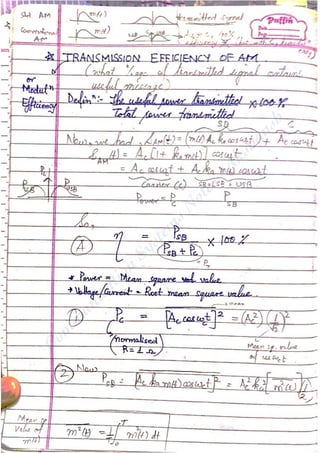 Std AM m(t) transmitted signal
Conventional AM m(t) 100%
Puffin
Date
Page
☆ TRANSMISSION EFFICIENCY OF AM
(what %age of transmitted signal contains
useful message)
or
Modulⁿ
Efficiency
Definⁿ:- The useful power transmitted × 100 %
Total power transmitted
SB C
Now, we had, S_AM(t) = (m(t) Ac ka cos ωct) + Ac cos ωct
S_AM(t) = Ac [1 + ka m(t)] cos ωct
= Ac cos ωct + Ac ka m(t) cos ωct
Carrier (c) SB = LSB + USB
Power = Pc P_SB
Pc
P_SB P_SB
So,
(A) η = P_SB / (P_SB + Pc) × 100 %
* Power = Mean square value
* Voltage/Current = Root mean square value.
① Pc = [Ac cos ωct]² = (Ac²) (1/√2)²
(normalised)
(R = 1 Ω)
Mean sq. value
of cos ωct
② Now
P_SB = [Ac ka m(t) cos ωct]² = Ac² ka² [m²(t)] (1/2)
Mean sq
Value of
m(t)
m²(t) = 1/T ∫₀ᵀ m²(t) dt